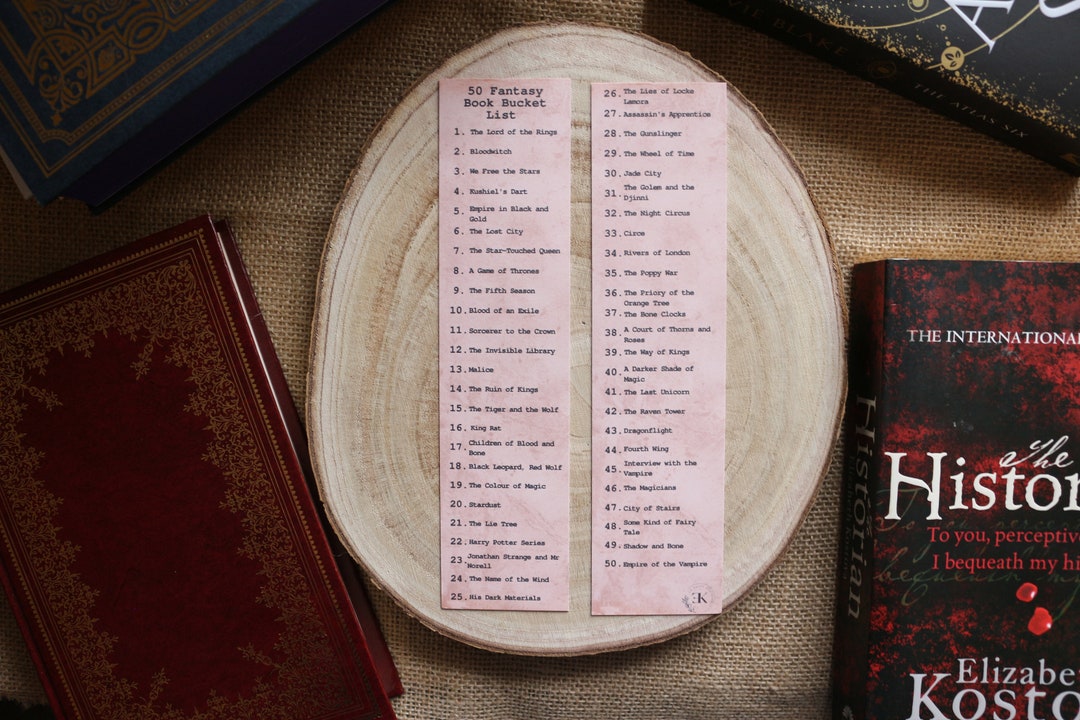 50 Fantasy
Book Bucket
List
1. The Lord of the Rings
2. Bloodwitch
3. We Free the Stars
4. Kushiel's Dart
5. Empire in Black and
Gold
6. The Lost City
7. The Star-Touched Queen
8. A Game of Thrones
9. The Fifth Season
10. Blood of an Exile
11. Sorcerer to the Crown
12. The Invisible Library
13. Malice
14. The Ruin of Kings
15. The Tiger and the Wolf
16. King Rat
17. Children of Blood and
Bone
18. Black Leopard, Red Wolf
19. The Colour of Magic
20. Stardust
21. The Lie Tree
22. Harry Potter Series
23. Jonathan Strange and Mr
Norell
24. The Name of the Wind
25. His Dark Materials
26. The Lies of Locke
Lamora
27. Assassin's Apprentice
28. The Gunslinger
29. The Wheel of Time
30. Jade City
31. The Golem and the
Djinni
32. The Night Circus
33. Circe
34. Rivers of London
35. The Poppy War
36. The Priory of the
Orange Tree
37. The Bone Clocks
38. A Court of Thorns and
Roses
39. The Way of Kings
40. A Darker Shade of
Magic
41. The Last Unicorn
42. The Raven Tower
43. Dragonflight
44. Fourth Wing
45. Interview with the
Vampire
46. The Magicians
47. City of Stairs
48. Some Kind of Fairy
Tale
49. Shadow and Bone
50. Empire of the Vampire
EK
VIE BLAKE
THE ATLAS SIX
THE INTERNATIONAL
The
Histor
To you, perceptive
I bequeath my hi
Elizabe
Kosto
Historian